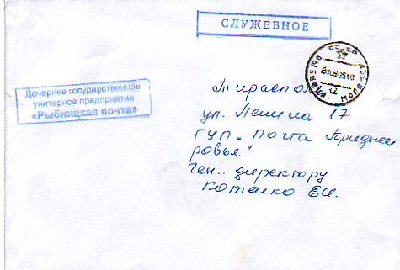 СЛУЖЕБНОЕ
Дочернее государственное
унитарное предприятие
«Рыбницкая почта»
Тирасполь
ул. Ленина 17
ГУП "Почта Приднест
ровья"
Ген. директору
Котенко Е.И.